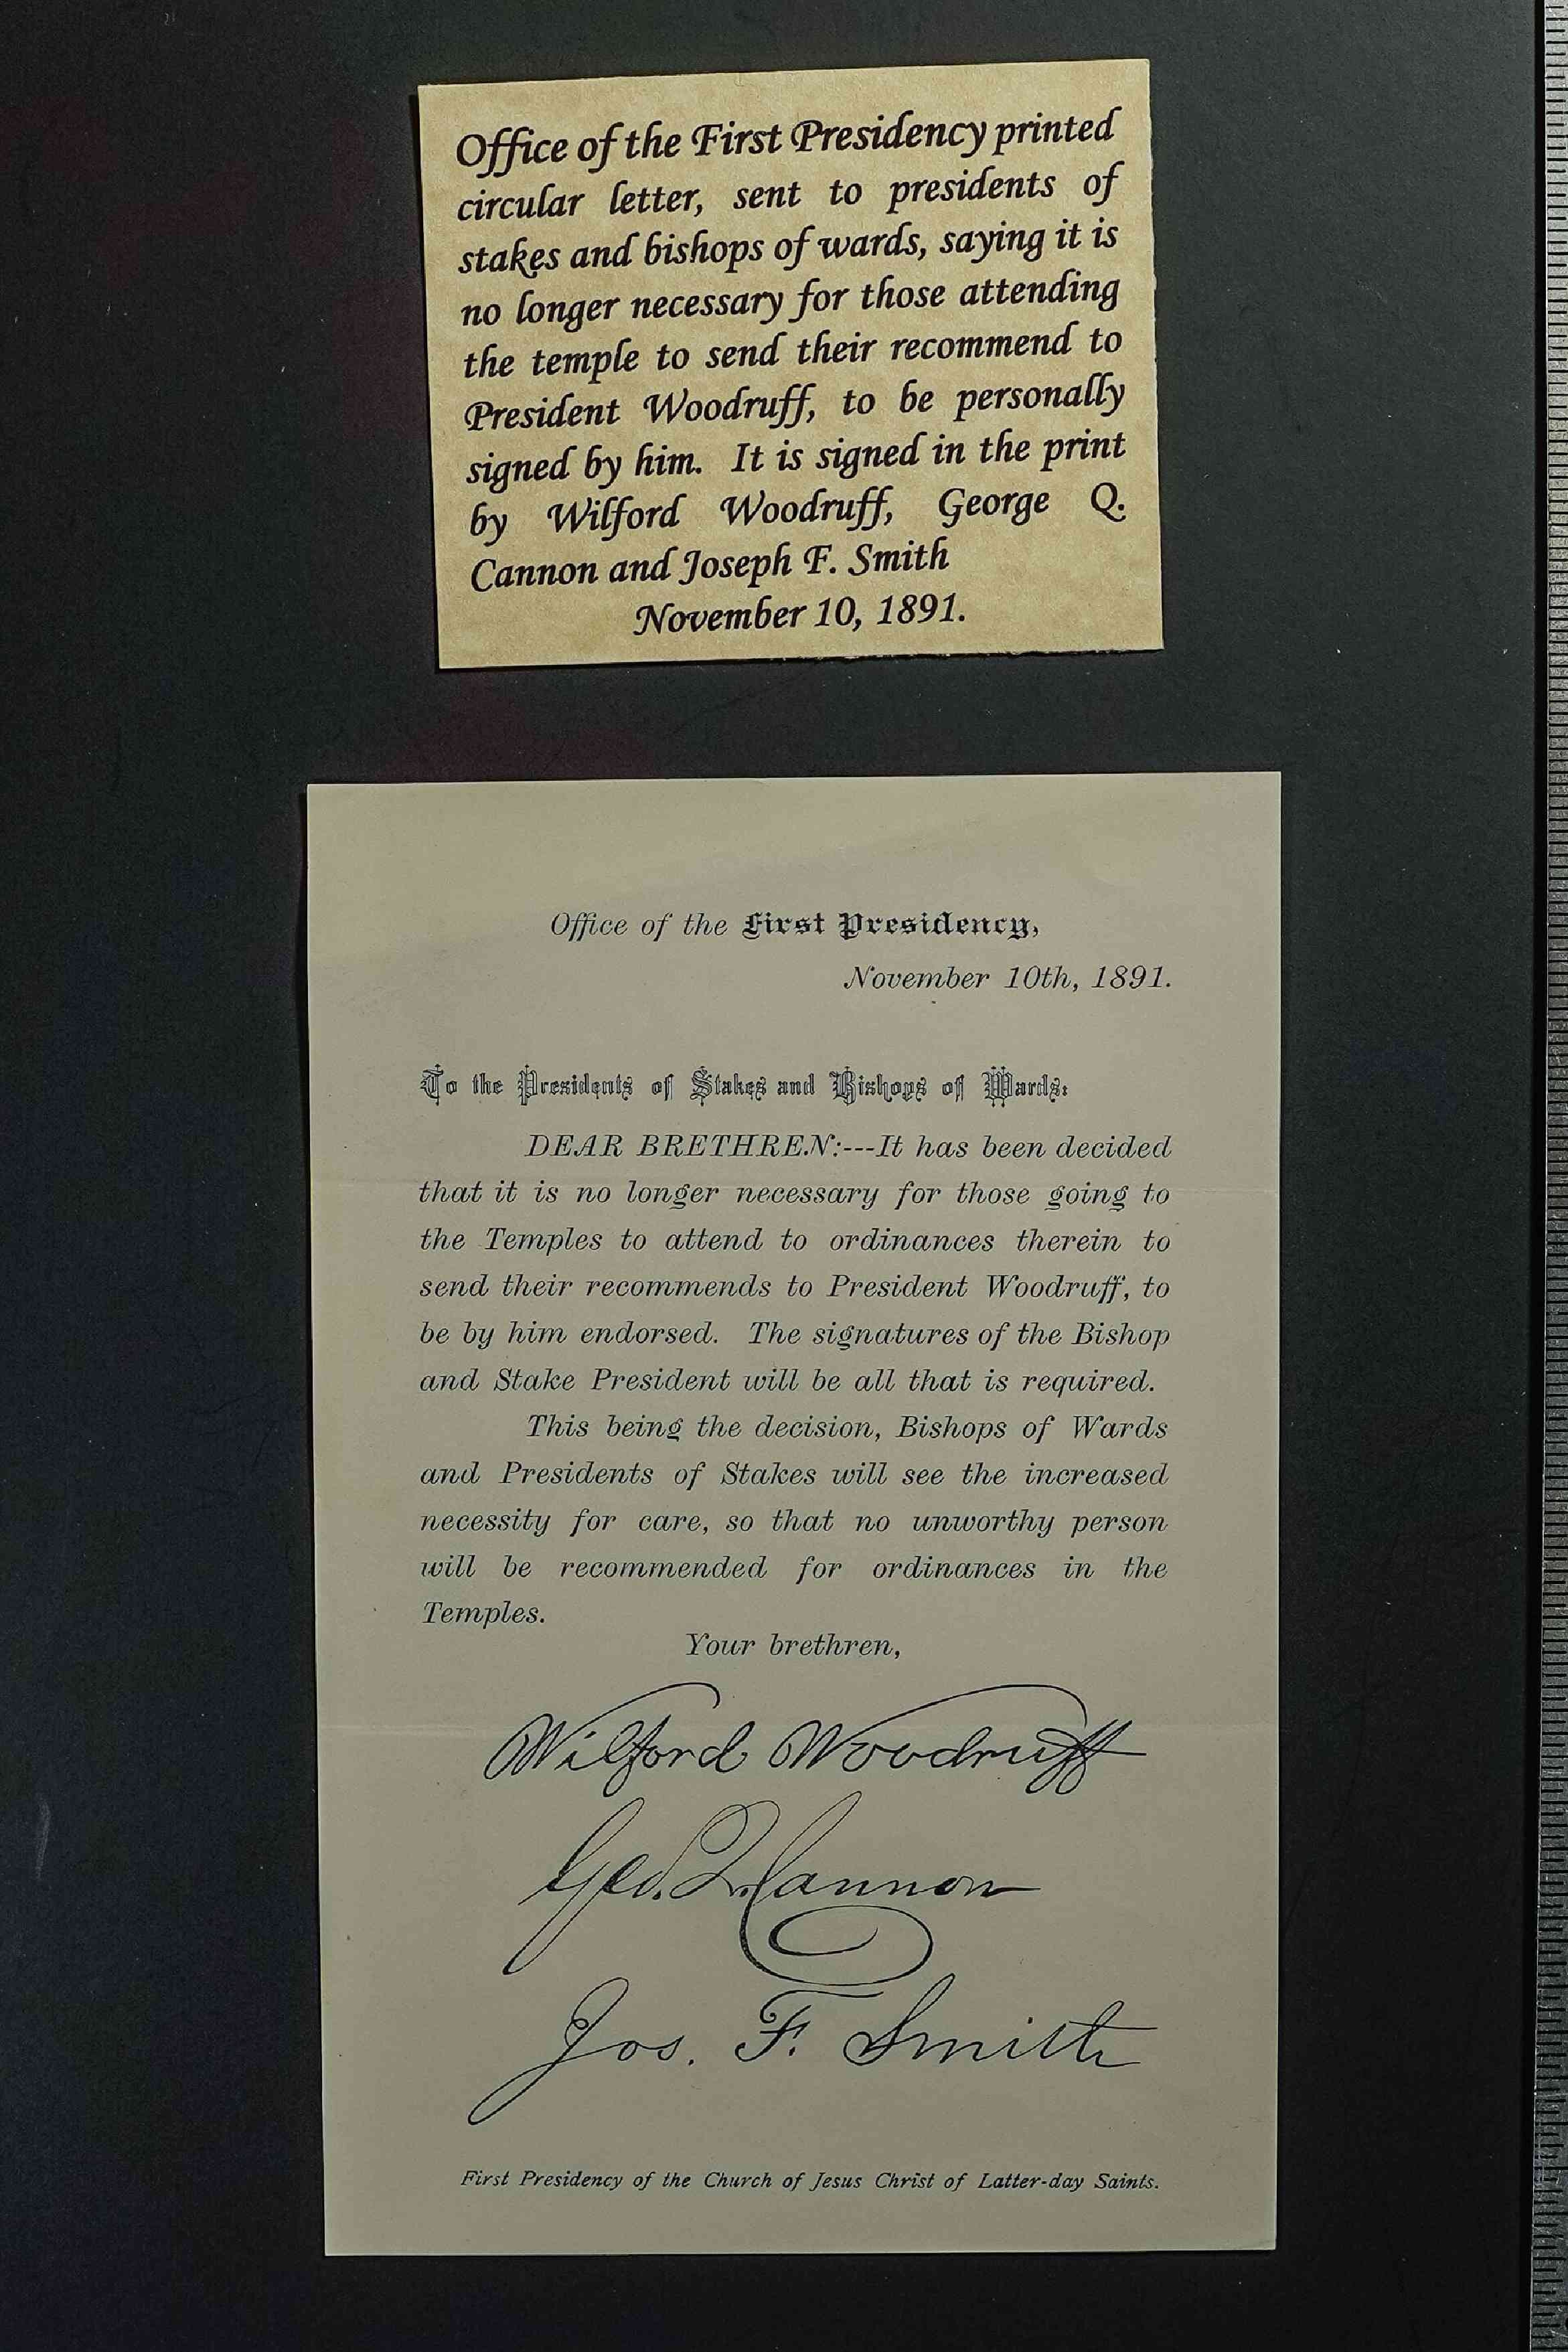 Office of the First Presidency printed
circular letter, sent to presidents of
stakes and bishops of wards, saying it is
no longer necessary for those attending
the temple to send their recommend to
President Woodruff, to be personally
signed by him. It is signed in the print
by Wilford Woodruff, George Q.
Cannon and Joseph F. Smith
November 10, 1891.
Office of the First Presidency,
November 10th, 1891.
To the Presidents of Stakes and Bishops of Wards:
DEAR BRETHREN:---It has been decided
that it is no longer necessary for those going to
the Temples to attend to ordinances therein to
send their recommends to President Woodruff, to
be by him endorsed. The signatures of the Bishop
and Stake President will be all that is required.
This being the decision, Bishops of Wards
and Presidents of Stakes will see the increased
necessity for care, so that no unworthy person
will be recommended for ordinances in the
Temples.
Your brethren,
Wilford Woodruff
Geo. Q. Cannon
Jos. F. Smith
First Presidency of the Church of Jesus Christ of Latter-day Saints.